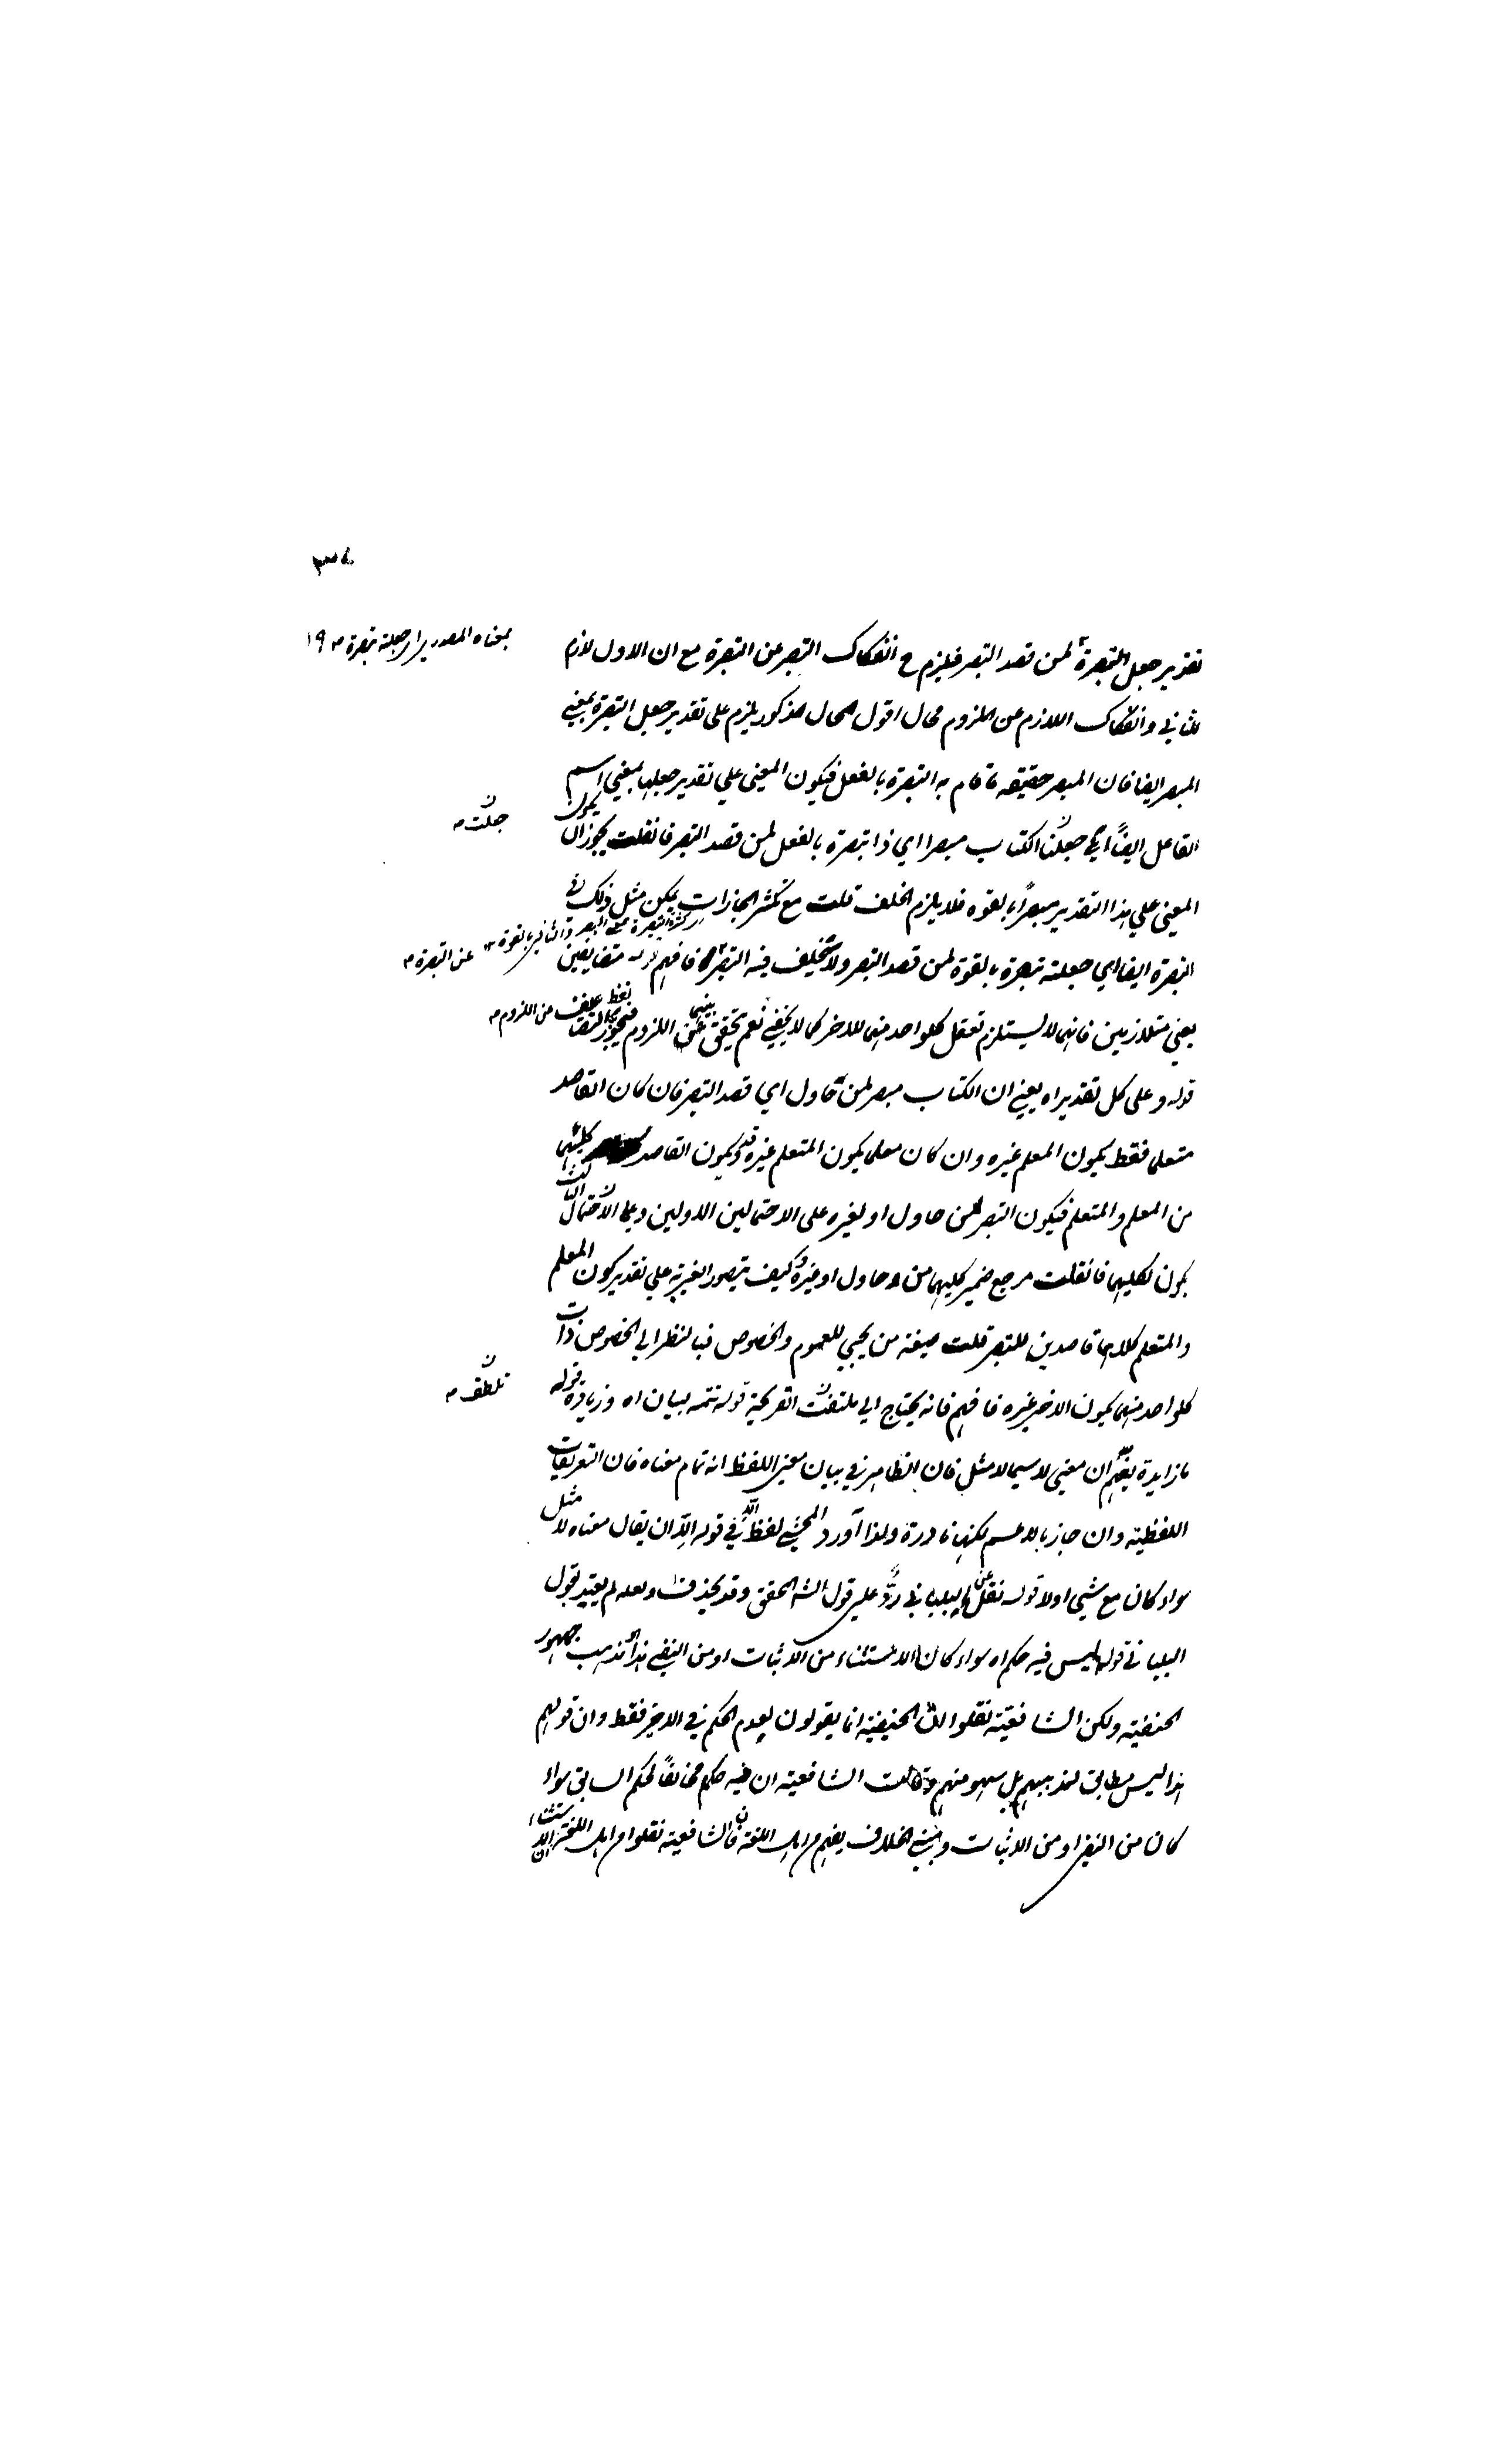 ٣٤
تقدير جعل التبصرة لمن قصد التبصر فيلزم ح انفكاك التبصر عن التبصرة مع ان الاول لازم
بمعناه المصدر اي جعلته تبصرة ١٩
للثاني وانفكاك اللازم عن الملزوم محال اقول المحال المذكور يلزم على تقدير جعل التبصرة بمعني
المبصر ايضا فان المبصر حقيقة ما قام به التبصرة بالفعل فيكون المعنى علي تقدير جعلها بمعني اسم
الفاعل ايضًا اي جعلنا الكتاب مبصرا اي ذا تبصرة بالفعل لمن قصد التبصر فانقلت يجوز ان يكون
جعلت
المعنى علي هذا التقدير مبصرًا بالقوه فلا يلزم الخلف قلت مع تكثر المجازات يمكن مثل ذلك في
التبصرة ايضا اي جعلته تبصرة بالقوة لمن قصد التبصر ولا تخليف فيه التبصر فافهم قوله متضايفين
عن التبصرة
يعني متلازمين فانهما لا يستلزم تعقل كلواحد منهما للاخر كما لا يخفي نعم يتحقق بينهما اللزوم
من اللزوم
قوله وعلى كل تقدير اه يعني ان الكتاب مبصر لمن حاول اي قصد التبصر فان كان القاصد
متعلما فقط يكون المعلم غيره وان كان معلما يكون المتعلم غيره وقد يكون القاصد كليهما
من المعلم والمتعلم فيكون التبصر لمن حاول او لغيره على الاحتمالين الاولين وعلى الاحتمال الثالث
يكون لكليهما فانقلت مرجع ضمير كليهما من حاول او غيره وكيف يتصور الغيرية علي تقدير كون المعلم
والمتعلم كلاهما قاصدين للتبصر قلت صيغة من يجيي للعموم والخصوص فبالنظر الي الخصوص ذات
كلواحد منهما يكون الاخر غيره فافهم فانه يحتاج الي تلطف القريحة قوله تتمه لبيان اه وزيادة قوله
تلطف
ما زايدة يفهم ان معني لا سيما لا مثل فان الظاهر في بيان معني اللفظ انه تمام معناه فان التعريفات
اللفظية وان جاز بالاعم لكنها نادرة ولذا آورد المحشي لفظ في قوله الا ان يقال معناه لا مثل
سواء كان مع شيي اولا قوله نقل عن البلباني ردٌّ علي قول الشه المحقق وقد يحذف ولعله لم يقيد بقول
البلباني قوله ليس فيه حكم اه سواء كان الاستثناء من الاثبات او من النفي هذا هو مذهب جمهور
الحنفية ولكن الشافعيّة نقلوا ان الحنيفية انما يقولون بعدم الحكم في الاخير فقط وان قولهم
هذا ليس مطابق لمذهبهم بل سهو منهم وقالت الشافعية ان فيه حكم مخالفًا لحكم السابق سواء
كان من النفي او من الاثبات ومبني الخلاف يفهم من اهل اللغة فان الشافعية نقلوا من اهل اللغة ان